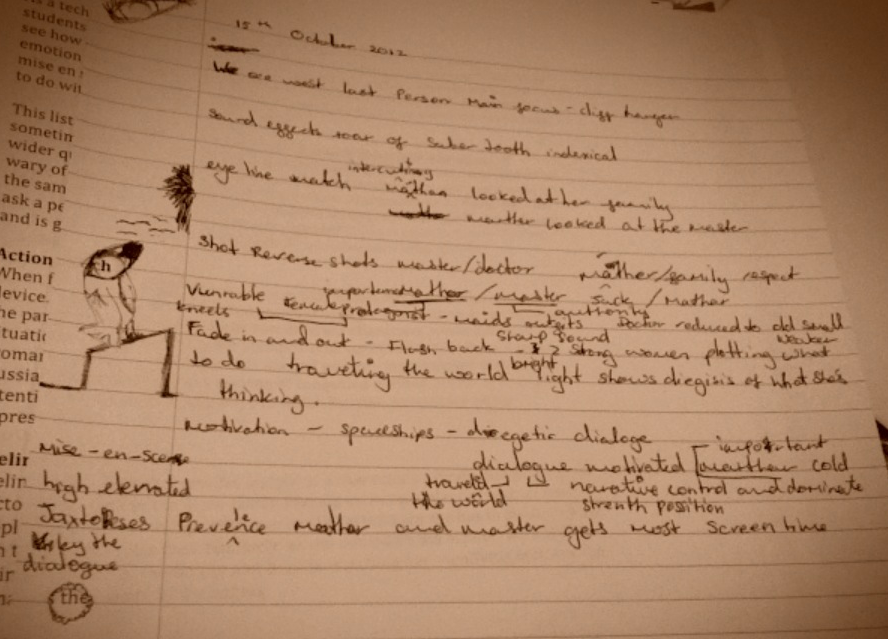 is a tech
students
see how
emotion
mise en
to do wit
This list
sometin
wider q
wary of
the sam
ask a pe
and is g
Action
When f
device.
he par
tuatic
omar
ussia
tenti
pres
elir
elir
cto
pl
n t
ir
15th October 2012
We are last Person Main focus - cliff hanger
Sound effects roar of Saber tooth indexical
intercutting
eye line match looked at her family
marther looked at the master
Shot Reverse shots master/doctor mather/family respect
Vunrable importance Mather / master / Mather
kneels female protagonist - maids outfits Doctor reduced to old small
authority
sharp sound weaker
Fade in and out - Flash back - 2 Strong women plotting what
to do traveling the world bright light shows diegisis of what she's
thinking.
h
motivation - spaceships - diegetic dialoge
important
Mise-en-scene
dialogue motivated marther cold
high elerrated
traveld narative control and dominate
the world strenth position
Prevelence mather and master gets most screentime
the
dialogue
the